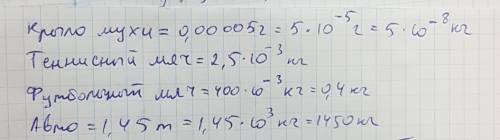 Крыло мухи = 0,00005г = 5·10⁻⁵г = 5·10⁻⁸ кг
Теннисный мяч = 2,5·10⁻³ кг
Футбольный мяч = 400·10⁻³ кг = 0,4 кг
Авто = 1,45 т = 1,45·10³ кг = 1450 кг